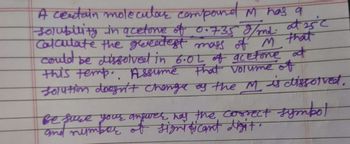 A certain molecular compound M has a
solubility in acetone of 0.735 g/mL at 25°C
Calculate the greatest mass of M that
could be dissolved in 6.0L of acetone at
this temp.. Assume that volume of
solution doesn't change as the M is dissolved.
Be sure your answer has the correct symbol
and number of significant digit.